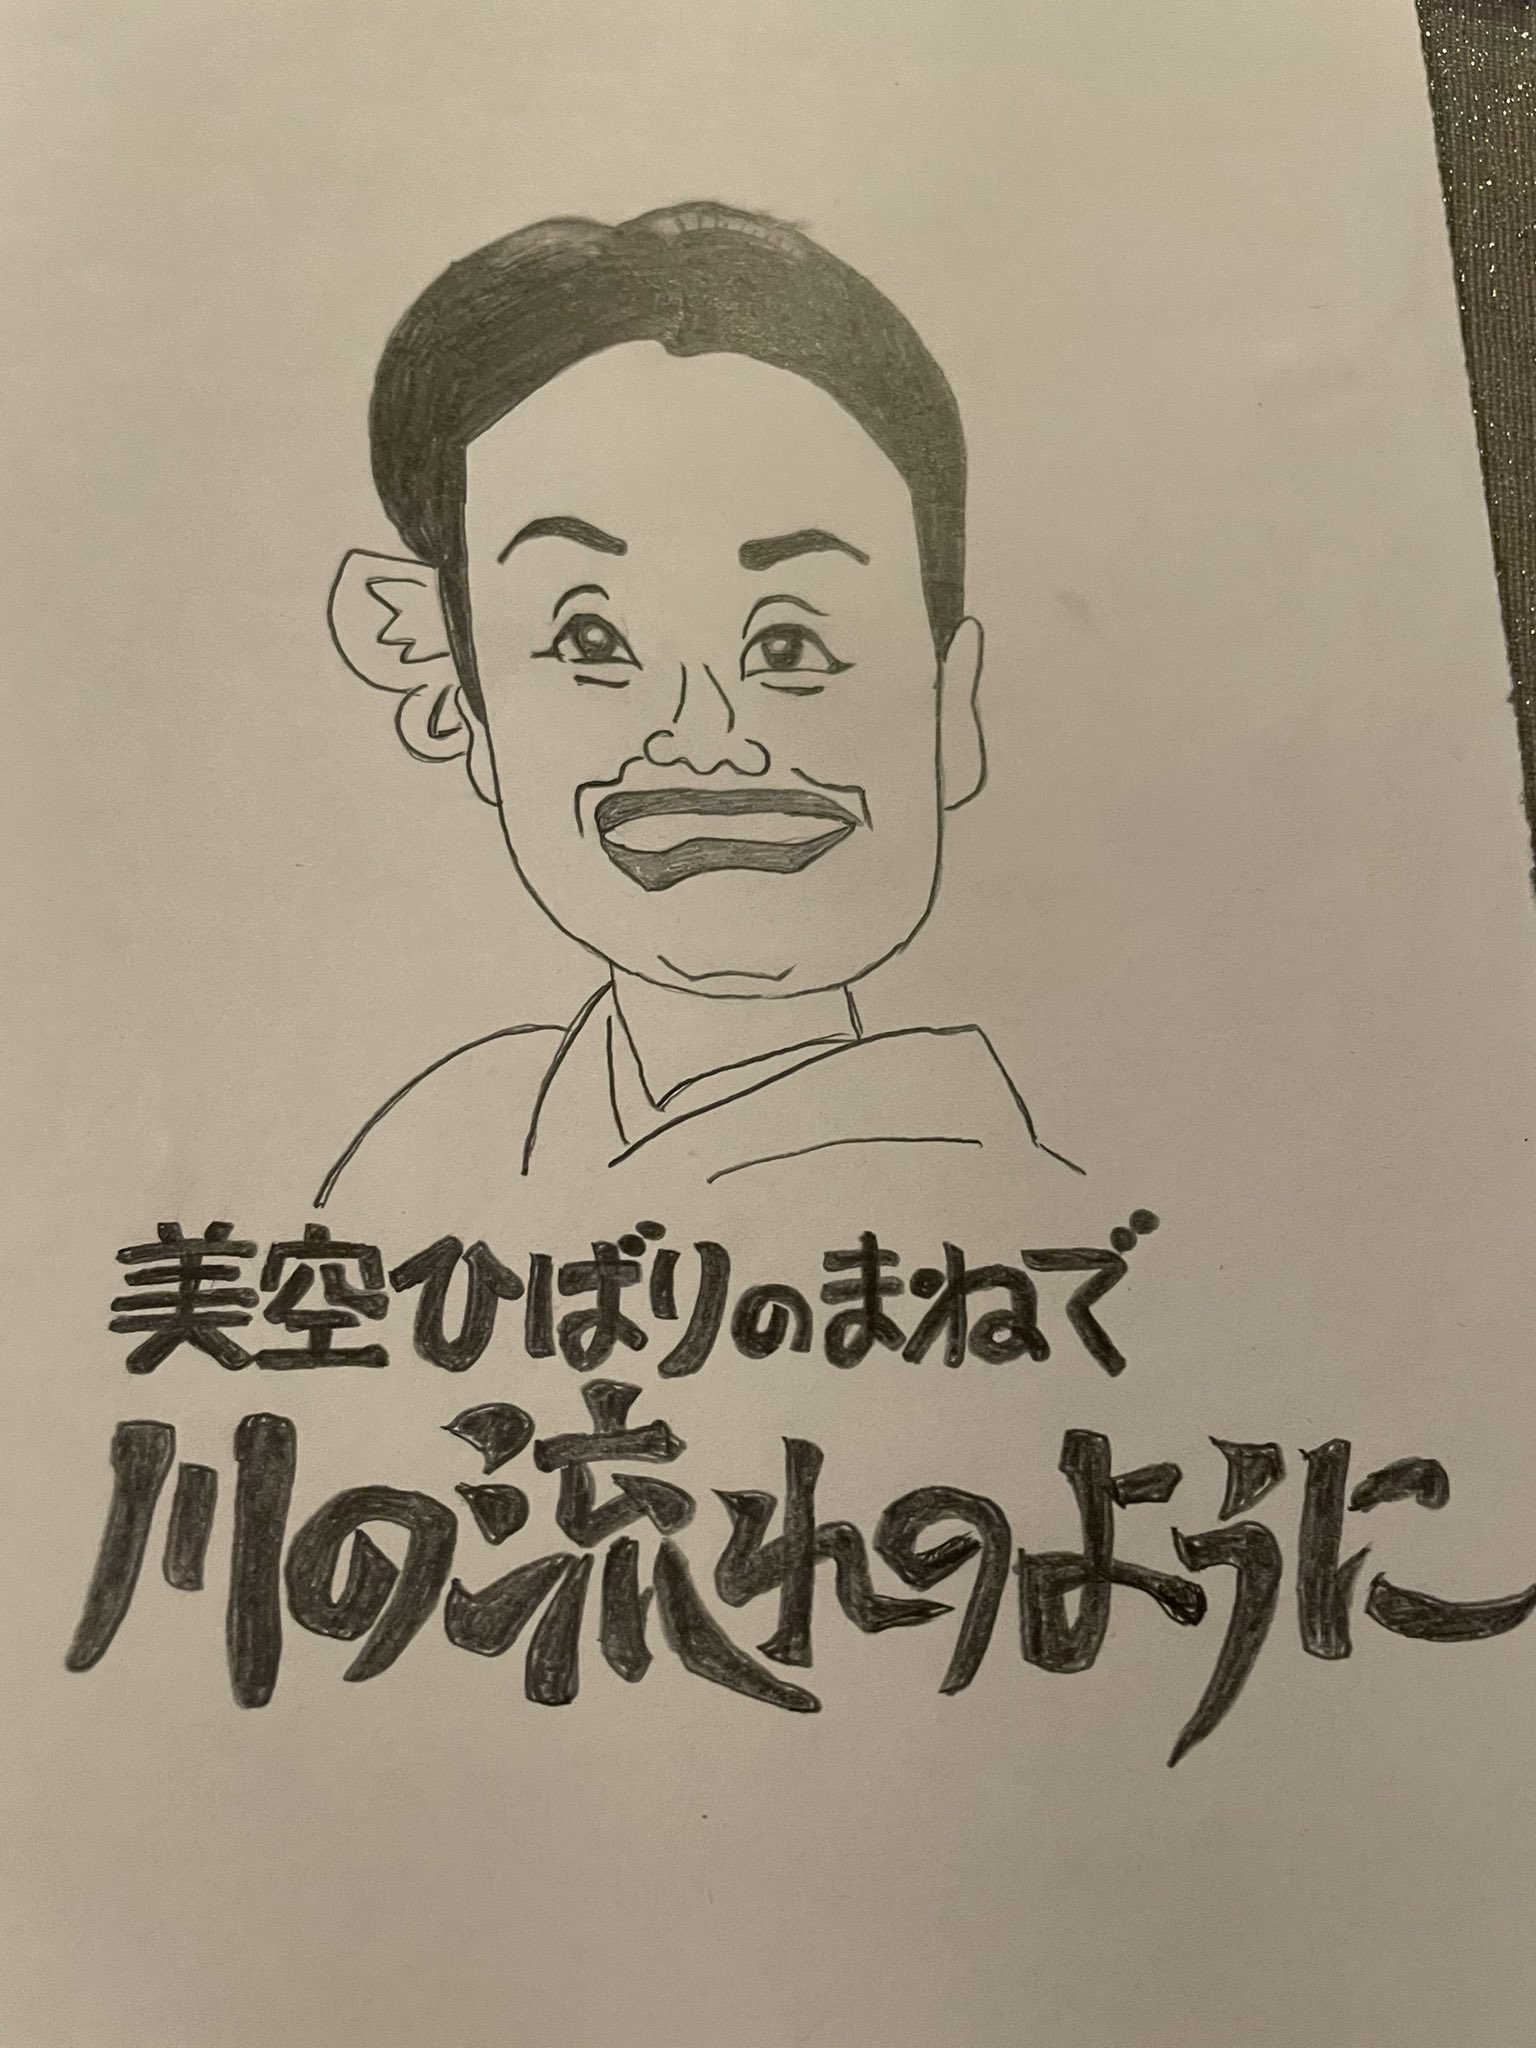 美空ひばりのまねで
川の流れのように